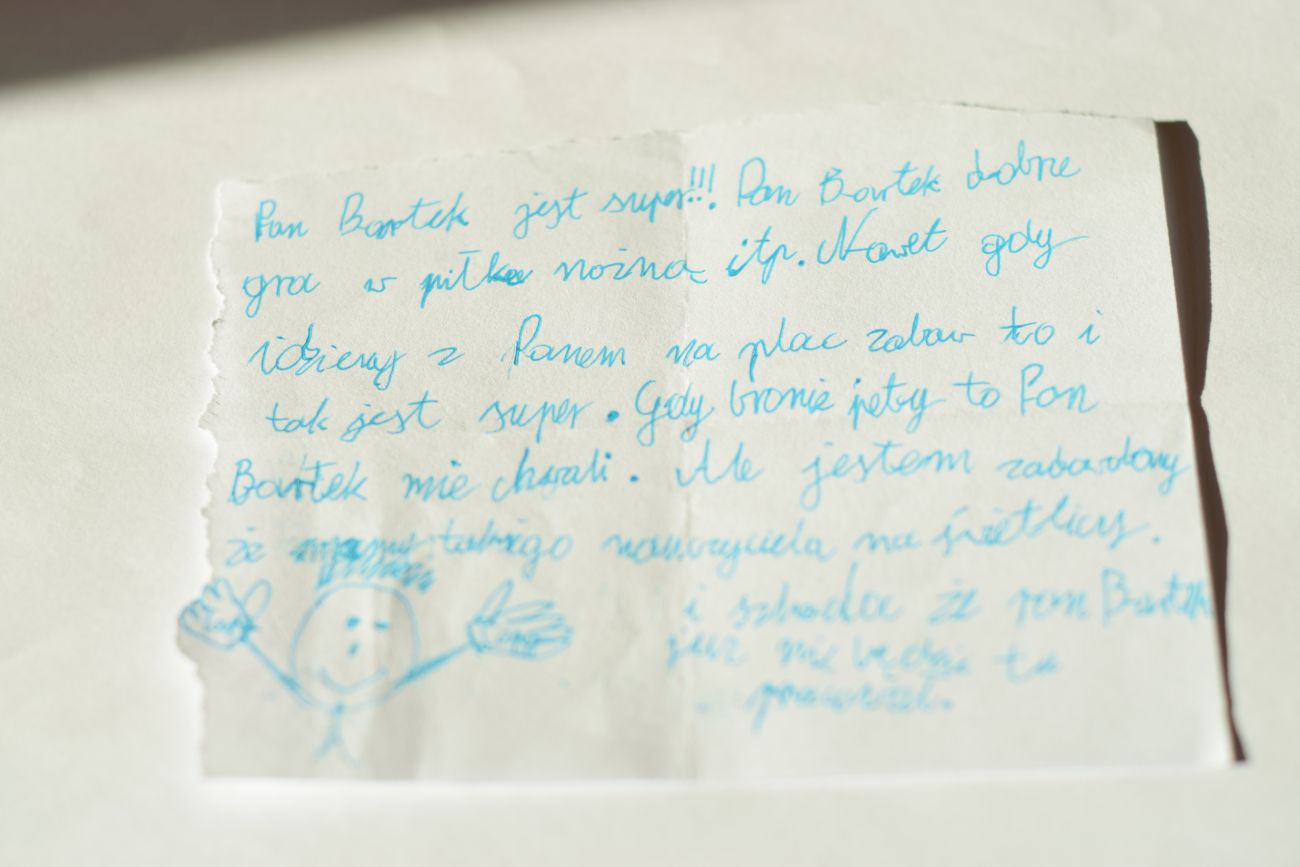 Pan Bartek jest super!!! Pan Bartek dobrze
gra w piłke nożną itp. Nawet gdy
idziemy z Panem na plac zabaw to i
tak jest super. Gdy bronie pety to Pan
Bartek mie chwali. Ale jestem zadowolony
że mamy takiego nauczyciela na świetlicy.
i szkoda że pan Bartek
już nie będzie tu
pracował.